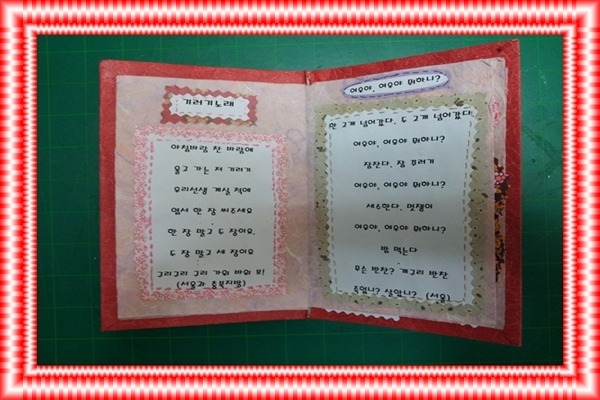 기러기노래
아침바람 찬 바람에
울고 가는 저 기러기
우리선생 계실 적에
엽서 한 장 써주세요
한 장 말고 두 장이요.
두 장 말고 세 장이요
구리구리 구리 가위 바위 보!
(서울과 충북지방)
여우야, 여우야 뭐하니?
한 고개 넘어갔다, 두 고개 넘어갔다
여우야, 여우야 뭐하니?
잠잔다. 잠꾸러기
여우야, 여우야 뭐하니?
세수한다. 멋쟁이
여우야, 여우야 뭐하니?
밥 먹는다
무슨 반찬? 개구리 반찬
죽었니? 살았니? (서울)